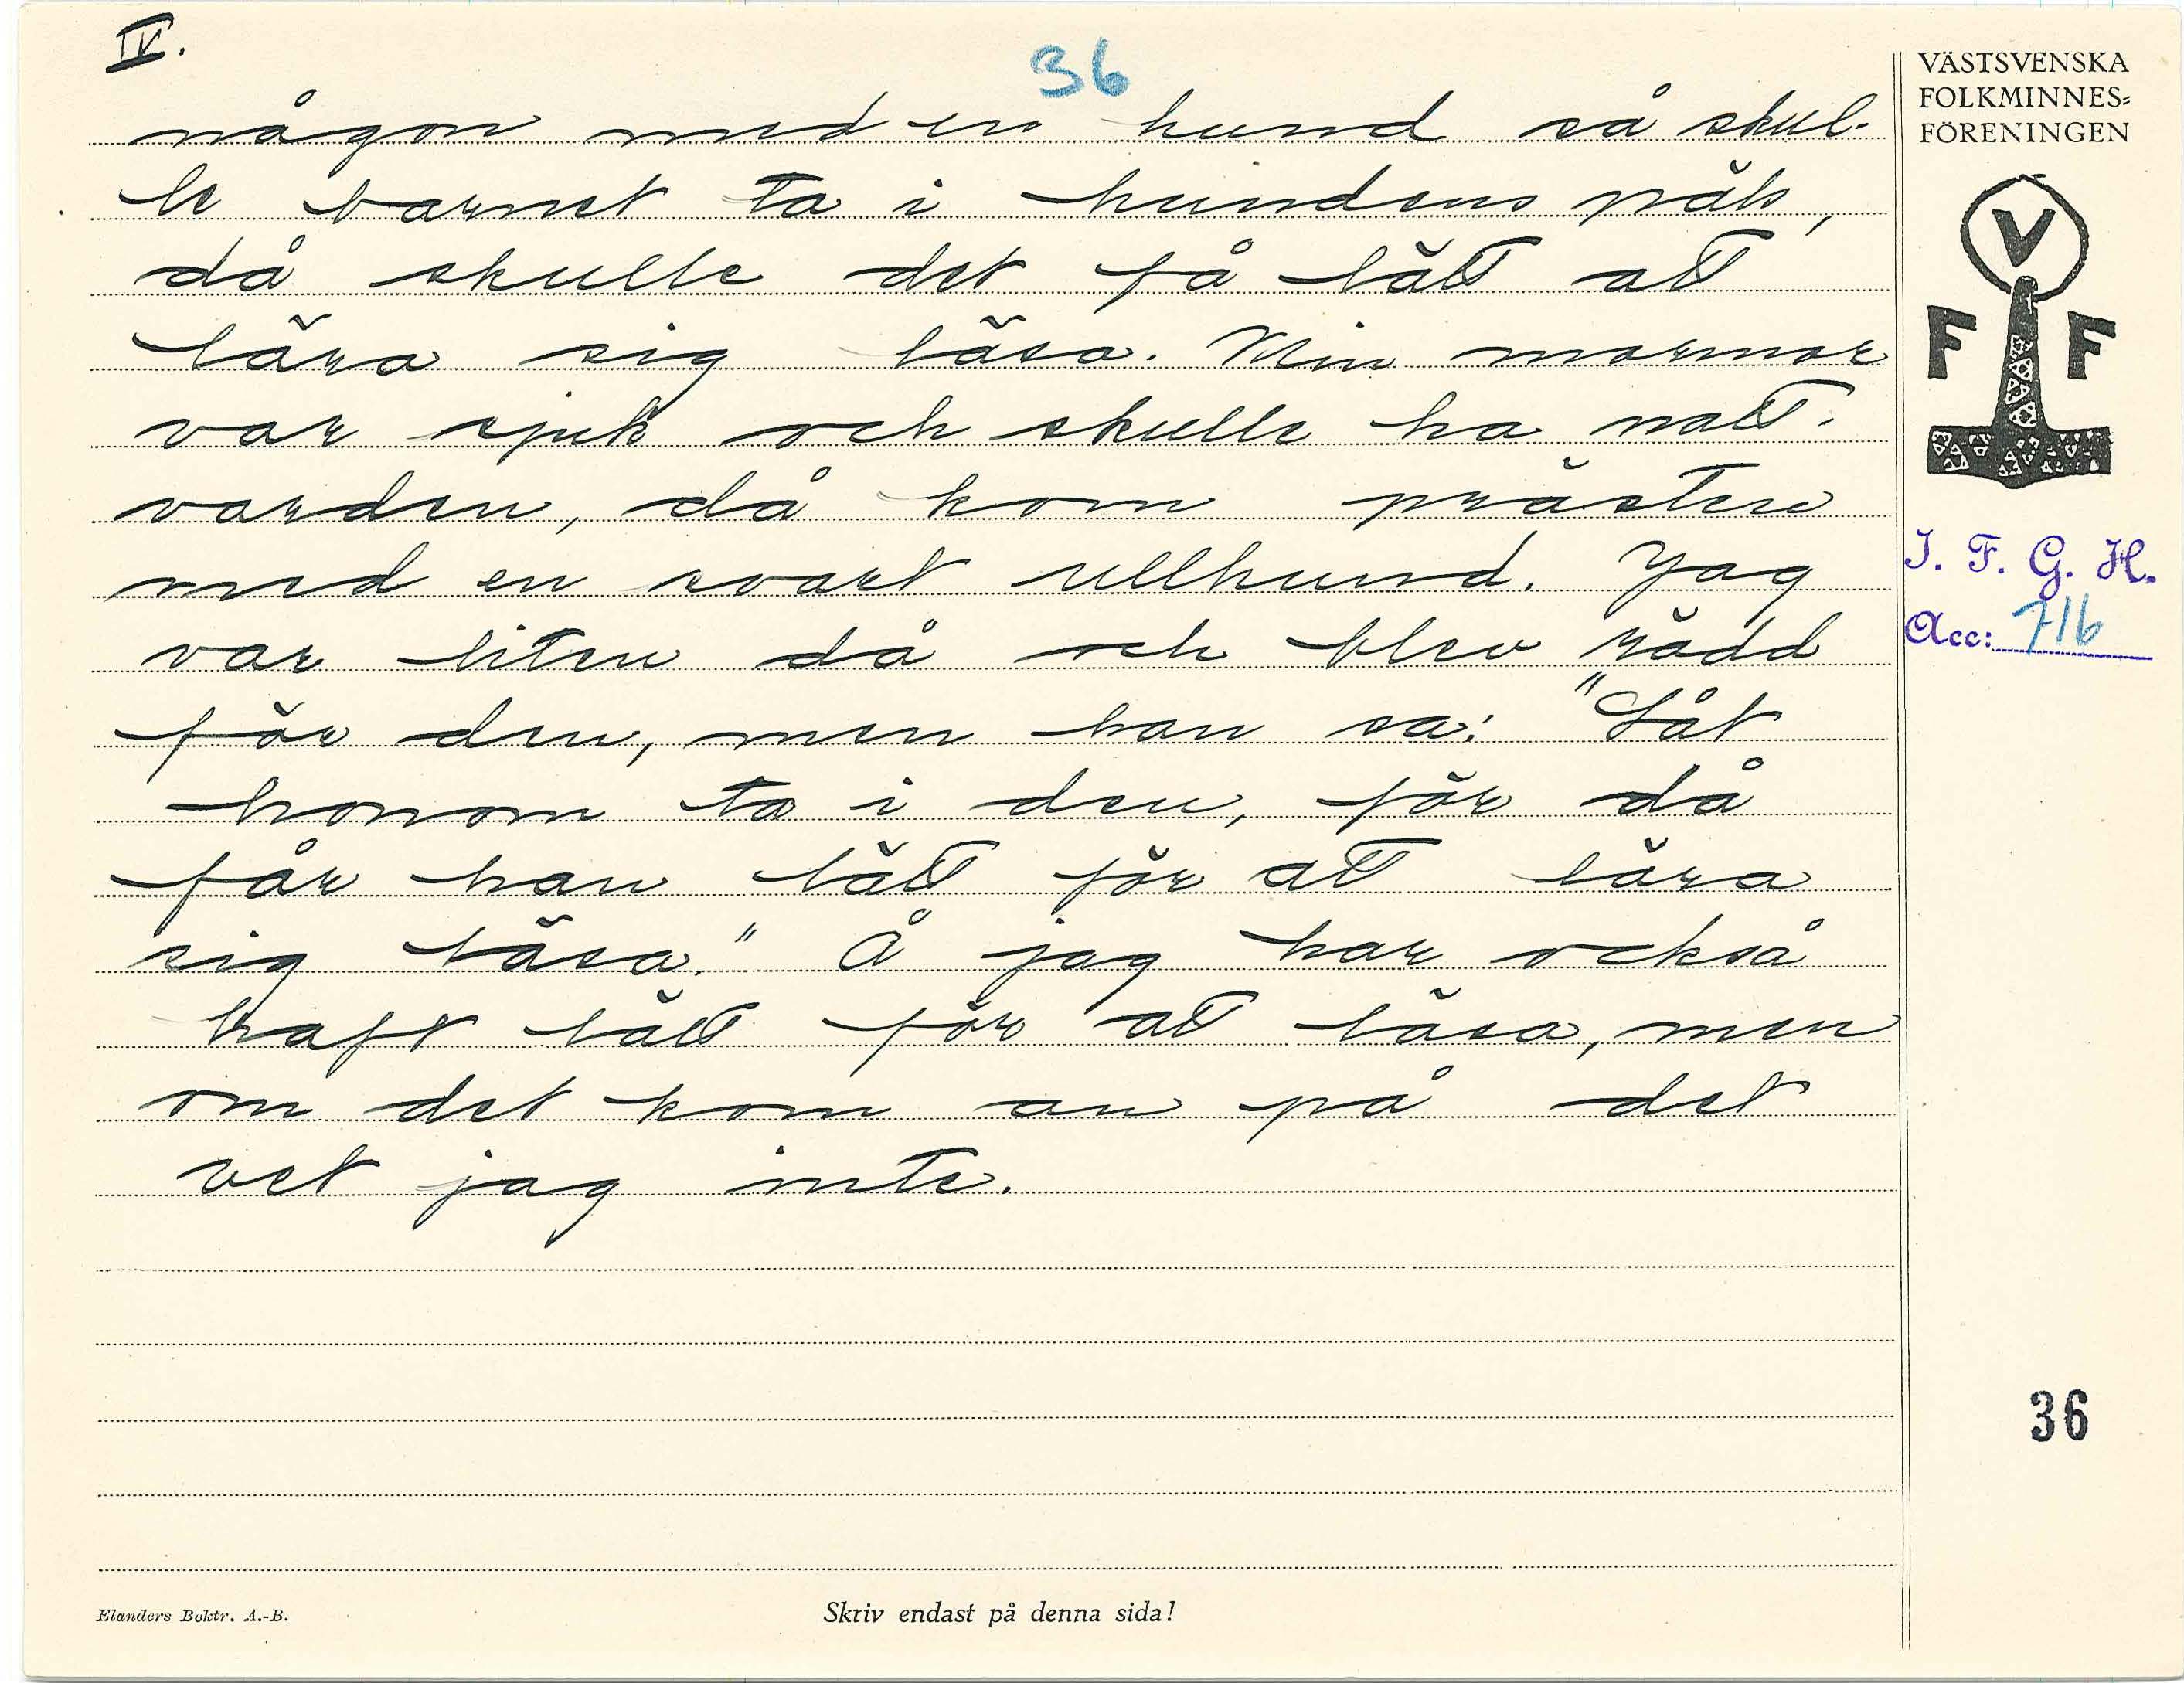 IV.
36
någon med en hund så skul-
le barnet ta i hundens päls,
då skulle det få lätt att
lära sig läsa. Min mormor
var sjuk och skulle ha natt-
varden, då kom prästen
med en svart ullhund. Jag
var liten då och blev rädd
för den, men han sa: "Låt
honom ta i den, för då
får han lätt för att lära
sig läsa." Å jag har också
haft lätt för att läsa, men
om det kom an på det
vet jag inte.
Elanders Boktr. A.-B.
Skriv endast på denna sida!
VÄSTSVENSKA
FOLKMINNES=
FÖRENINGEN
V
F F
I. F. G. H.
Acc: 716
36